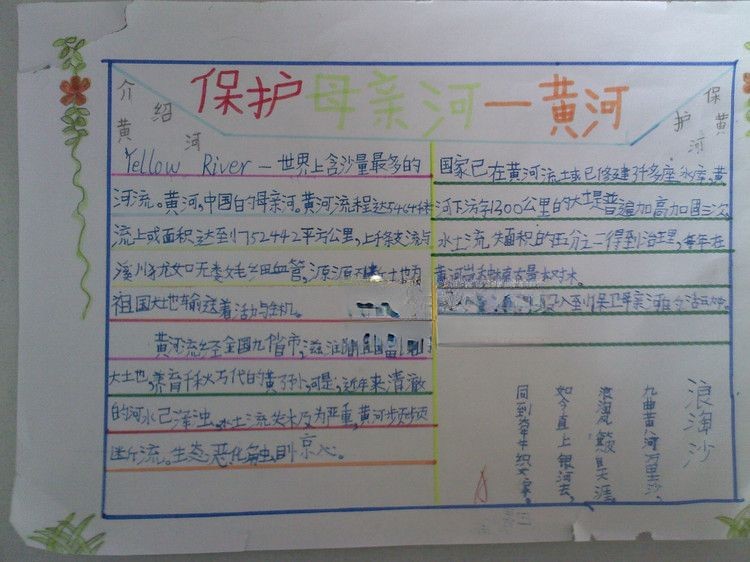 保护母亲河—黄河
介绍黄河
保护黄河
Yellow River — 世界上含沙量最多的
河流。黄河,中国的母亲河。黄河流程达5464米
流域面积达到752442平方公里,上千条支流与
溪川犹如无类毛细血管,源源不断土地为
祖国大地输送着活力与生机。
黄河流经全国九省市,滋润
大土地,养育千秋万代的黄了孙,可是,近年来清澈
的河水已浑浊,水土流失极为严重,黄河频频
断流。生态恶化触目京心。
国家已在黄河流域已修建好多座水库,黄
河下游1300公里的大堤普遍加高加固三次。
水土流失面积的五分之二得到治理,每年在
黄河
入到保卫母亲河的活动
浪淘沙
九曲黄河万里沙,
浪淘风簸自天涯。
如今直上银河去,
同到牵牛织女家。